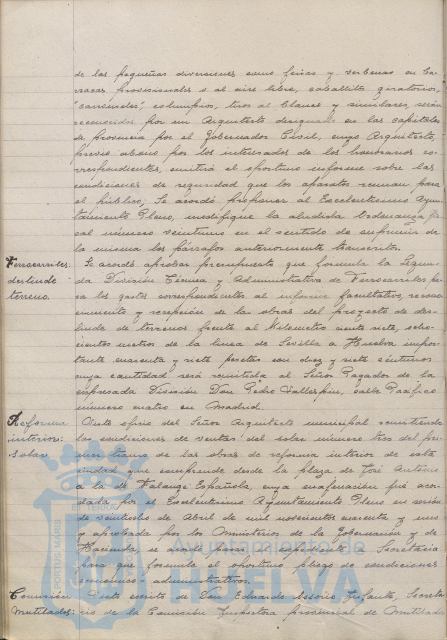 de las pequeñas diversiones como ferias y verbenas en ba-
rracas provisionales o al aire libre, caballitos giratorios,
"carrousеles", columpios, tiros al blanco y similares, serán
reconocidos por un Arquitecto designado en las capitales
de provincia por el Gobernador Civil, cuyo Arquitecto,
previo abono por los interesados de los honorarios co-
rrespondientes, emitirá el oportuno informe sobre las
condiciones de seguridad que los aparatos reunan para
el público; Se acordó proponer al Excelentísimo Ayun-
tamiento Pleno, modifique la aludida Ordenanza fis-
cal número veintiuno en el sentido de suprimir de
la misma los párrafos anteriormente transcritos.
Ferrocarriles: Se acordó aprobar presupuesto que formula la Segun-
deslinde da División Técnica y Administrativa de Ferrocarriles pa-
terreno. ra los gastos correspondientes al informe facultativo, recono-
cimiento y recepción de las obras del proyecto de des-
linde de terrenos frente al Kilómetro ciento siete, ocho-
cientos metros de la línea de Sevilla a Huelva impor-
tante cuarenta y siete pesetas con diez y siete céntimos
cuya cantidad será remitida al Señor Pagador de la
expresada División Don Pedro calle Pacífico
número cuatro en Madrid.
Reforma Visto oficio del Señor Arquitecto municipal remitiendo
interior: las condiciones de venta del solar número tres del pri-
solar. mer tramo de las obras de reforma interior de esta
ciudad que comprende desde la plaza de José Antonio
a la de Falange Española, cuya enajenación fué acor-
dada por el Excelentísimo Ayuntamiento Pleno en sesión
de veintiocho de Abril de mil novecientos cuarenta y uno
y aprobada por los Ministerios de la Gobernación y de
Hacienda, se para a Secretaría
para que formule el oportuno pliego de condiciones
económico-administrativas.
Comisión Visto escrito de Don Eduardo Infante, Secreta-
Mutilados: rio de la Comisión Inspectora provincial de Mutilados
Ayuntamiento de
HUELVA
PORTUS MARIS